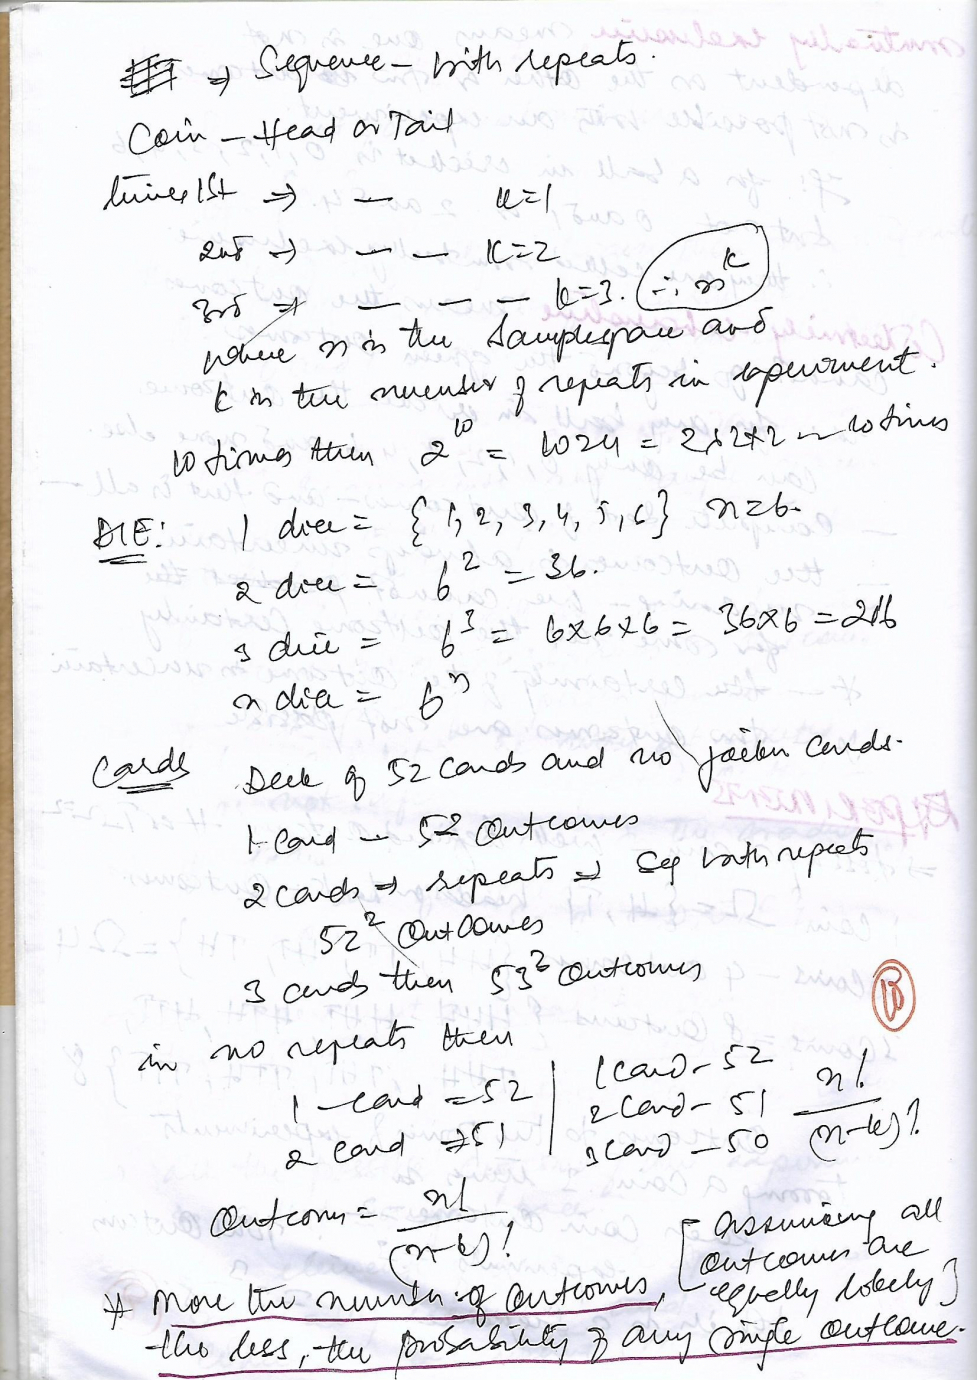 ⇒ Sequence - with repeats.
Coin - Head or Tail
times 1st ⇒ — k=1
2nd ⇒ — — k=2
3rd ⇒ — — — k=3. ∴ n^k
where n is the Samplespace and
k is the number of repeats in experiment.
10 times then 2^10 = 1024 = 2×2×2 — 10 times
DIE: 1 dice = {1, 2, 3, 4, 5, 6} n=6.
2 dice = 6^2 = 36.
3 dice = 6^3 = 6×6×6 = 36×6 = 216
n dice = 6^n
Cards Deck of 52 cards and no joker cards.
1 card - 52 outcomes
2 cards ⇒ repeats ⇒ seq with repeats
52^2 outcomes
3 cards then 53^2 outcomes
in no repeats then
1 - card = 52 | 1 card - 52
2 card ⇒ 51 | 2 card - 51
3 card - 50 n!/(n-k)!
Outcomes = n!/(n-k)!
[Assuming all
outcomes are
equally likely]
* More the number of outcomes,
the less, the probability of any single outcome.